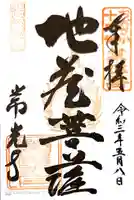 奉拝
令和三年五月八日
地蔵菩薩
常光寺